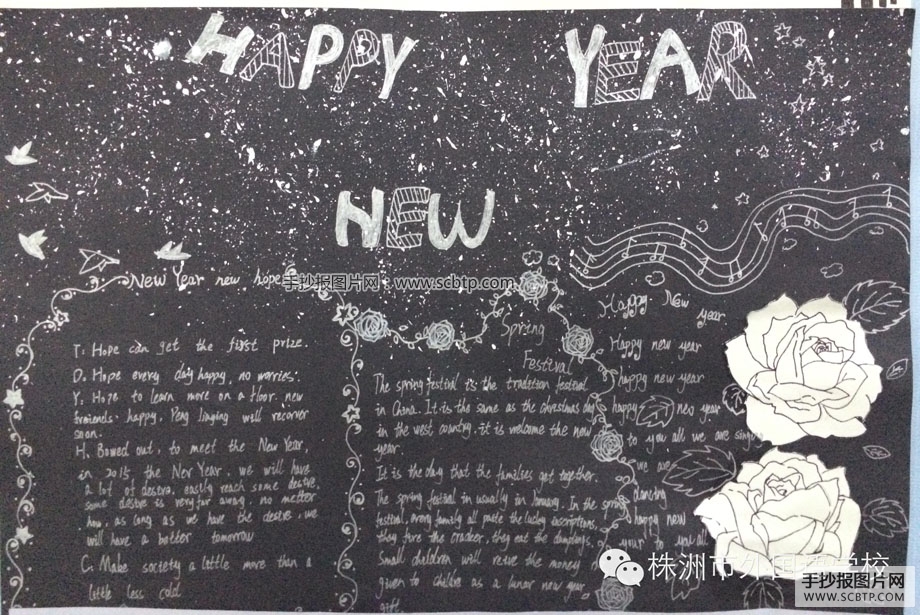 HAPPY YEAR
NEW
手抄报图片网：www.scbtp.com
New Year new hope
T: Hope can get the first prize.
D. Hope every day happy, no worries.
Y. Hope to learn more on a floor. new
friends. happy. Peng linging will recover
soon.
H. Bowed out, to meet the New Year,
in 2015 the Ner Year, we will have
a lot of desire, easily reach some desire,
some desire is very far away, no metter
how, as long as we have the desires, we
will have a better tomorrow
C. Make society a little more than a
little less cold
Spring
Festival
The spring festival is the tradition festival
in China. It is the same as the christmas day
in the west country. it is welcome the new
year
It is the day that the families get together.
The spring festival in usually in January. In the spring
festival, every family all paste the lucky inscriptions,
they fire the cracker, they eat the dumplings.
Small children will the money
given to as a lunar new year
gift
Happy New
year
Happy new year
happy new year
happy new year
to you all we are singing
we are
dancing
happy new
year to you all
株洲市外国语学校
手抄报图片网
WWW.SCBTP.COM